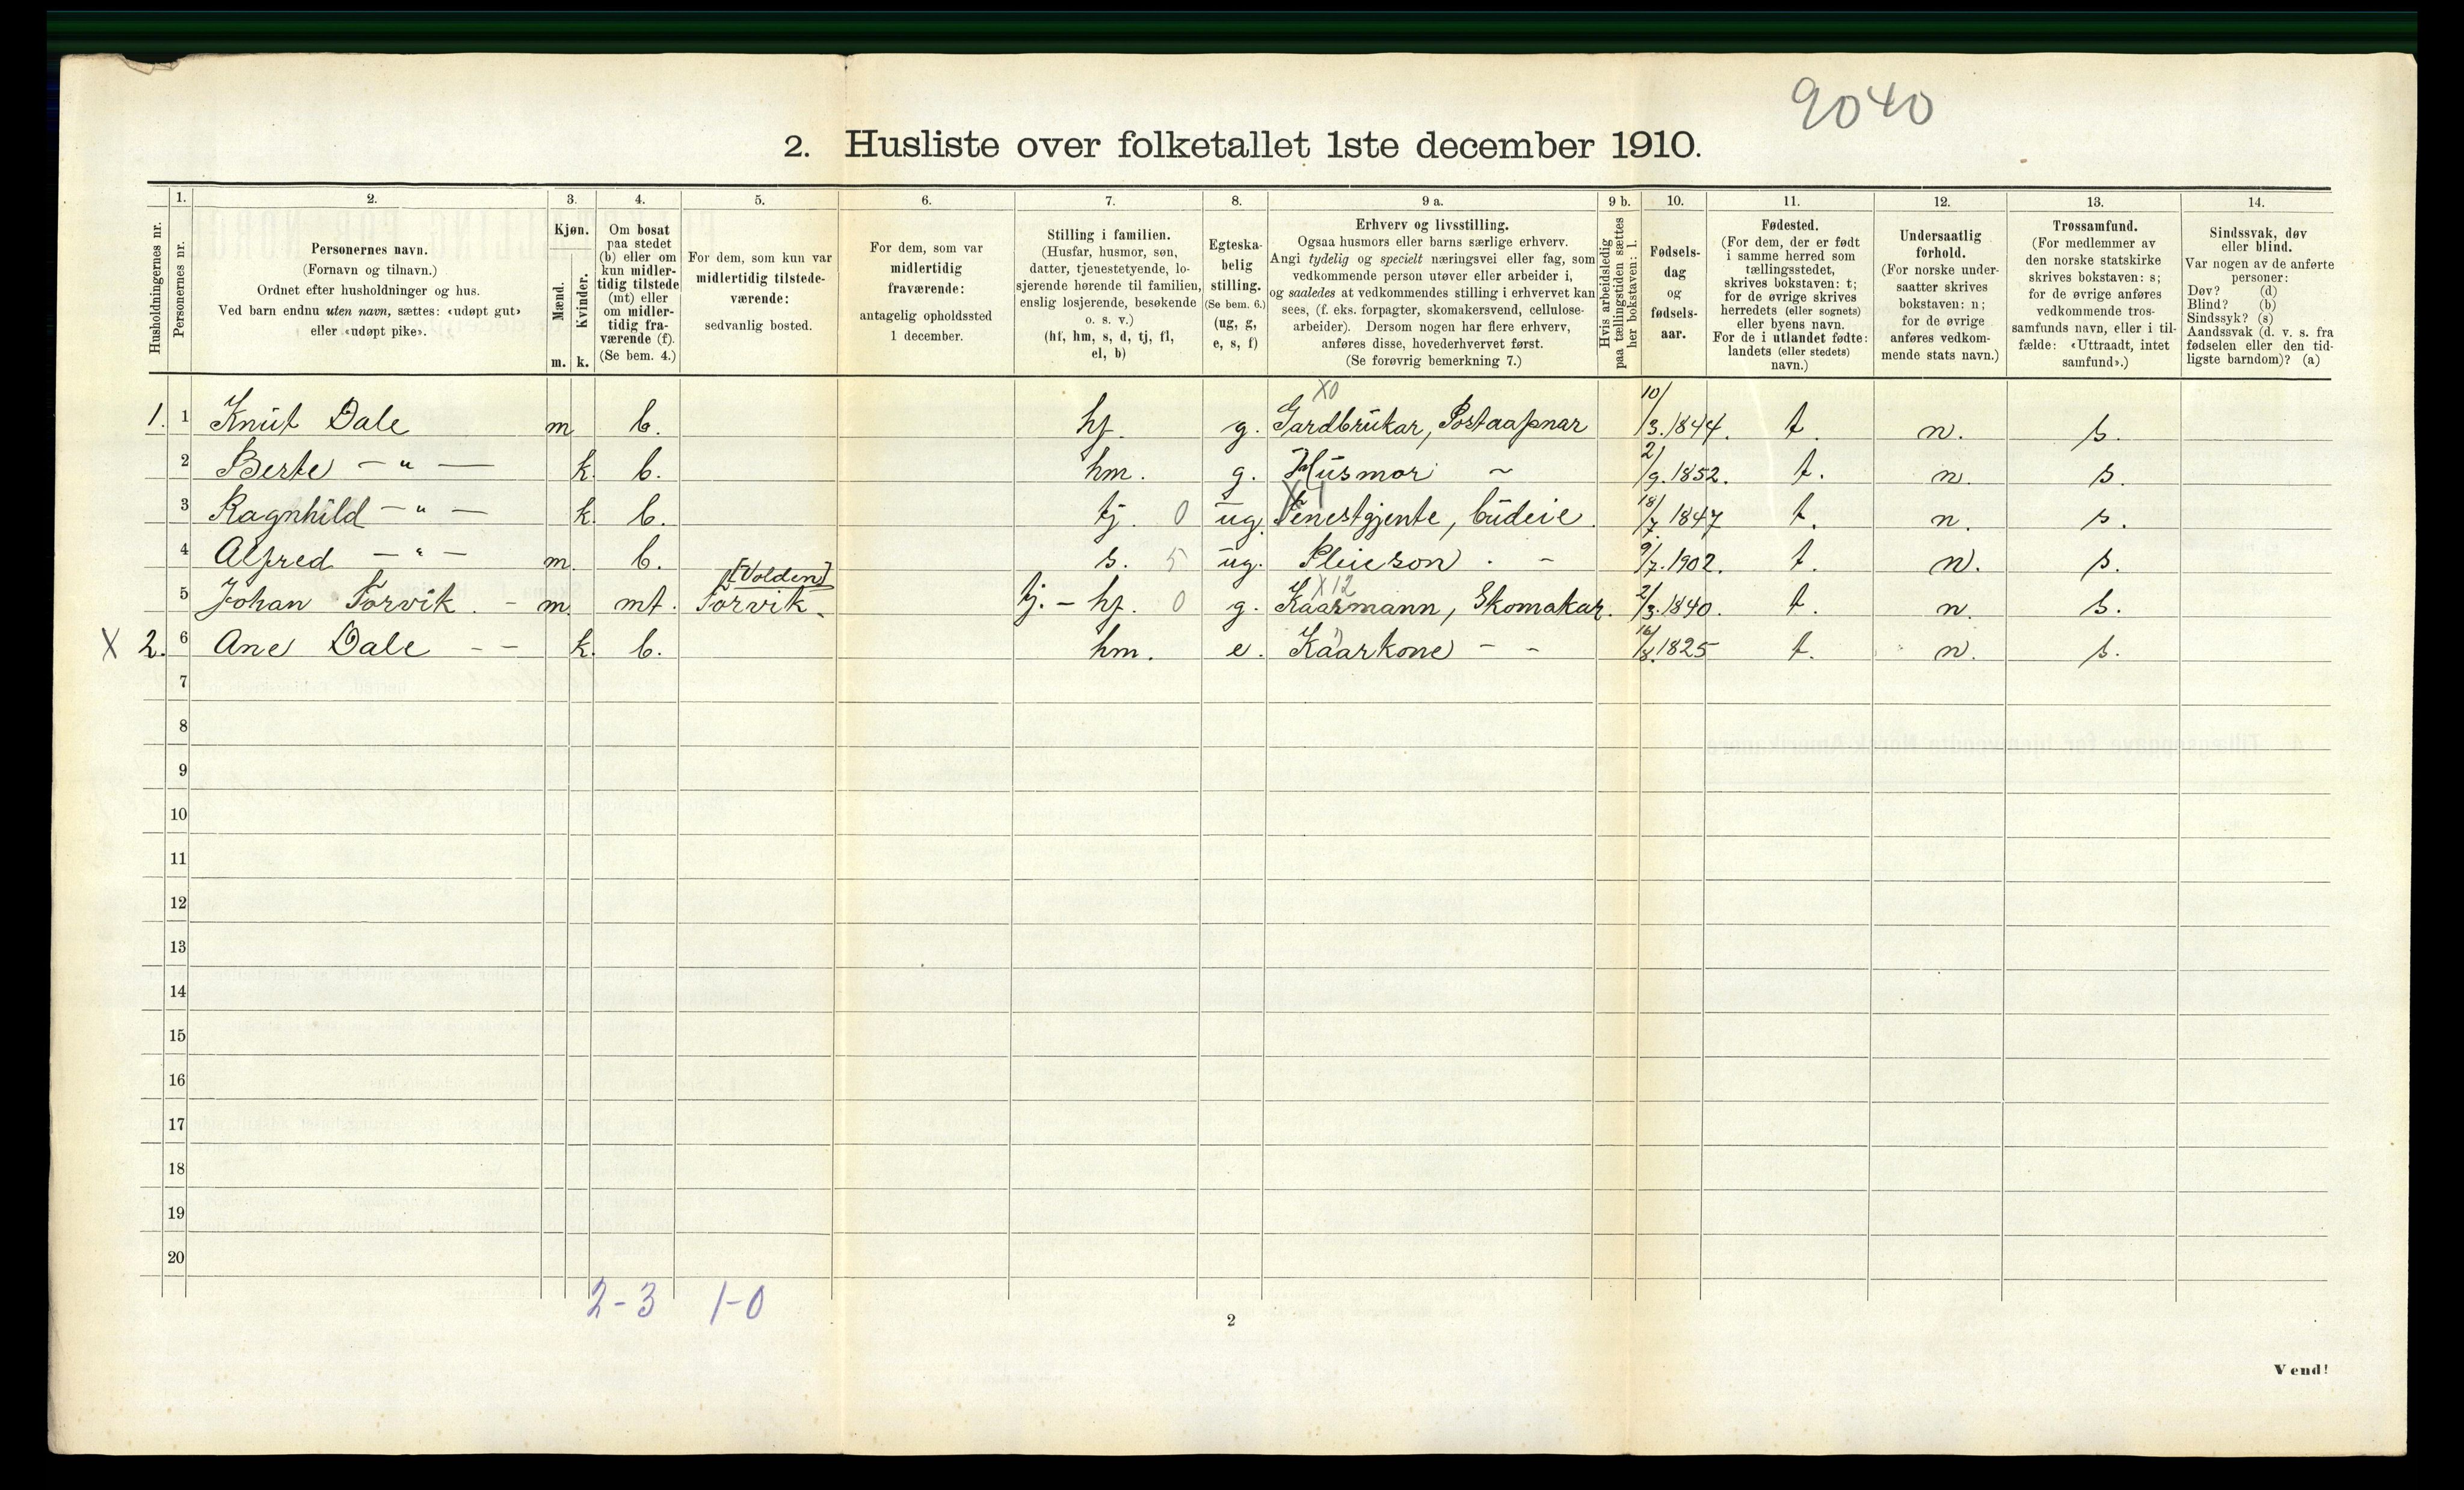 9040
2. Husliste over folketallet 1ste december 1910.
Husholdningernes nr.
1.
Personernes nr.
2.
Personernes navn.
(Fornavn og tilnavn.)
Ordnet efter husholdninger og hus.
Ved barn endnu uten navn, sættes: «udøpt gut»
eller «udøpt pike».
3.
Kjøn.
Mænd.
Kvinder.
m. k.
4.
Om bosat
paa stedet
(b) eller om
kun midler-
tidig tilstede
(mt) eller
om midler-
tidig fra-
værende (f).
(Se bem. 4.)
5.
For dem, som kun var
midlertidig tilstede-
værende:
sedvanlig bosted.
6.
For dem, som var
midlertidig
fraværende:
antagelig opholdssted
1 december.
7.
Stilling i familien.
(Husfar, husmor, søn,
datter, tjenestetyende, lo-
sjerende hørende til familien,
enslig losjerende, besøkende
o. s. v.)
(hf, hm, s, d, tj, fl,
el, b)
8.
Egteska-
belig
stilling.
(Se bem. 6.)
(ug, g,
e, s, f)
9 a.
Erhverv og livsstilling.
Ogsaa husmors eller barns særlige erhverv.
Angi tydelig og specielt næringsvei eller fag, som
vedkommende person utøver eller arbeider i,
og saaledes at vedkommendes stilling i erhvervet kan
sees, (f. eks. forpagter, skomakersvend, cellulose-
arbeider). Dersom nogen har flere erhverv,
anføres disse, hovederhvervet først.
(Se forøvrig bemerkning 7.)
9 b.
Hvis arbeidsledig
paa tællingstiden sættes
her bokstaven: l.
10.
Fødsels-
dag
og
fødsels-
aar.
11.
Fødested.
(For dem, der er født
i samme herred som
tællingsstedet,
skrives bokstaven: t;
for de øvrige skrives
herredets (eller sognets)
eller byens navn.
For de i utlandet fødte:
landets (eller stedets)
navn.)
12.
Undersaatlig
forhold.
(For norske under-
saatter skrives
bokstaven: n;
for de øvrige
anføres vedkom-
mende stats navn.)
13.
Trossamfund.
(For medlemmer av
den norske statskirke
skrives bokstaven: s;
for de øvrige anføres
vedkommende tros-
samfunds navn, eller i til-
fælde: «Uttraadt, intet
samfund».)
14.
Sindssvak, døv
eller blind.
Var nogen av de anførte
personer:
Døv? (d)
Blind? (b)
Sindssyk? (s)
Aandssvak (d. v. s. fra
fødselen eller den tid-
ligste barndom)? (a)
X0
1. 1 Knut Dale m b. hf. g. Gardbrukar, Postaapnar 10/3.1844. t n. s.
2 Berte — " — k. b. hm. g. Husmor ~ 2/9.1852. t. n. s.
3 Ragnhild — " — k. b. tj. 0 ug. Tenestgjente, budeie. 18/7.1847 t. n. s.
4 Alfred — " — m. b. s. 5 ug. Pleieson - 9/7.1902. t. n. s.
[Volden] X12
5 Johan Torvik. - m. mt. Torvik. tj. - hf. 0 g. Kaarmann, Skomakar. 2/3.1840. t. n. s.
X 2. 6 Ane Dale - - k. b. hm. e. Kaarkone - - 16/8.1825 t. n. s.
7
8
9
10
11
12
13
14
15
16
17
18
19
20
2-3 1-0
2
Vend!